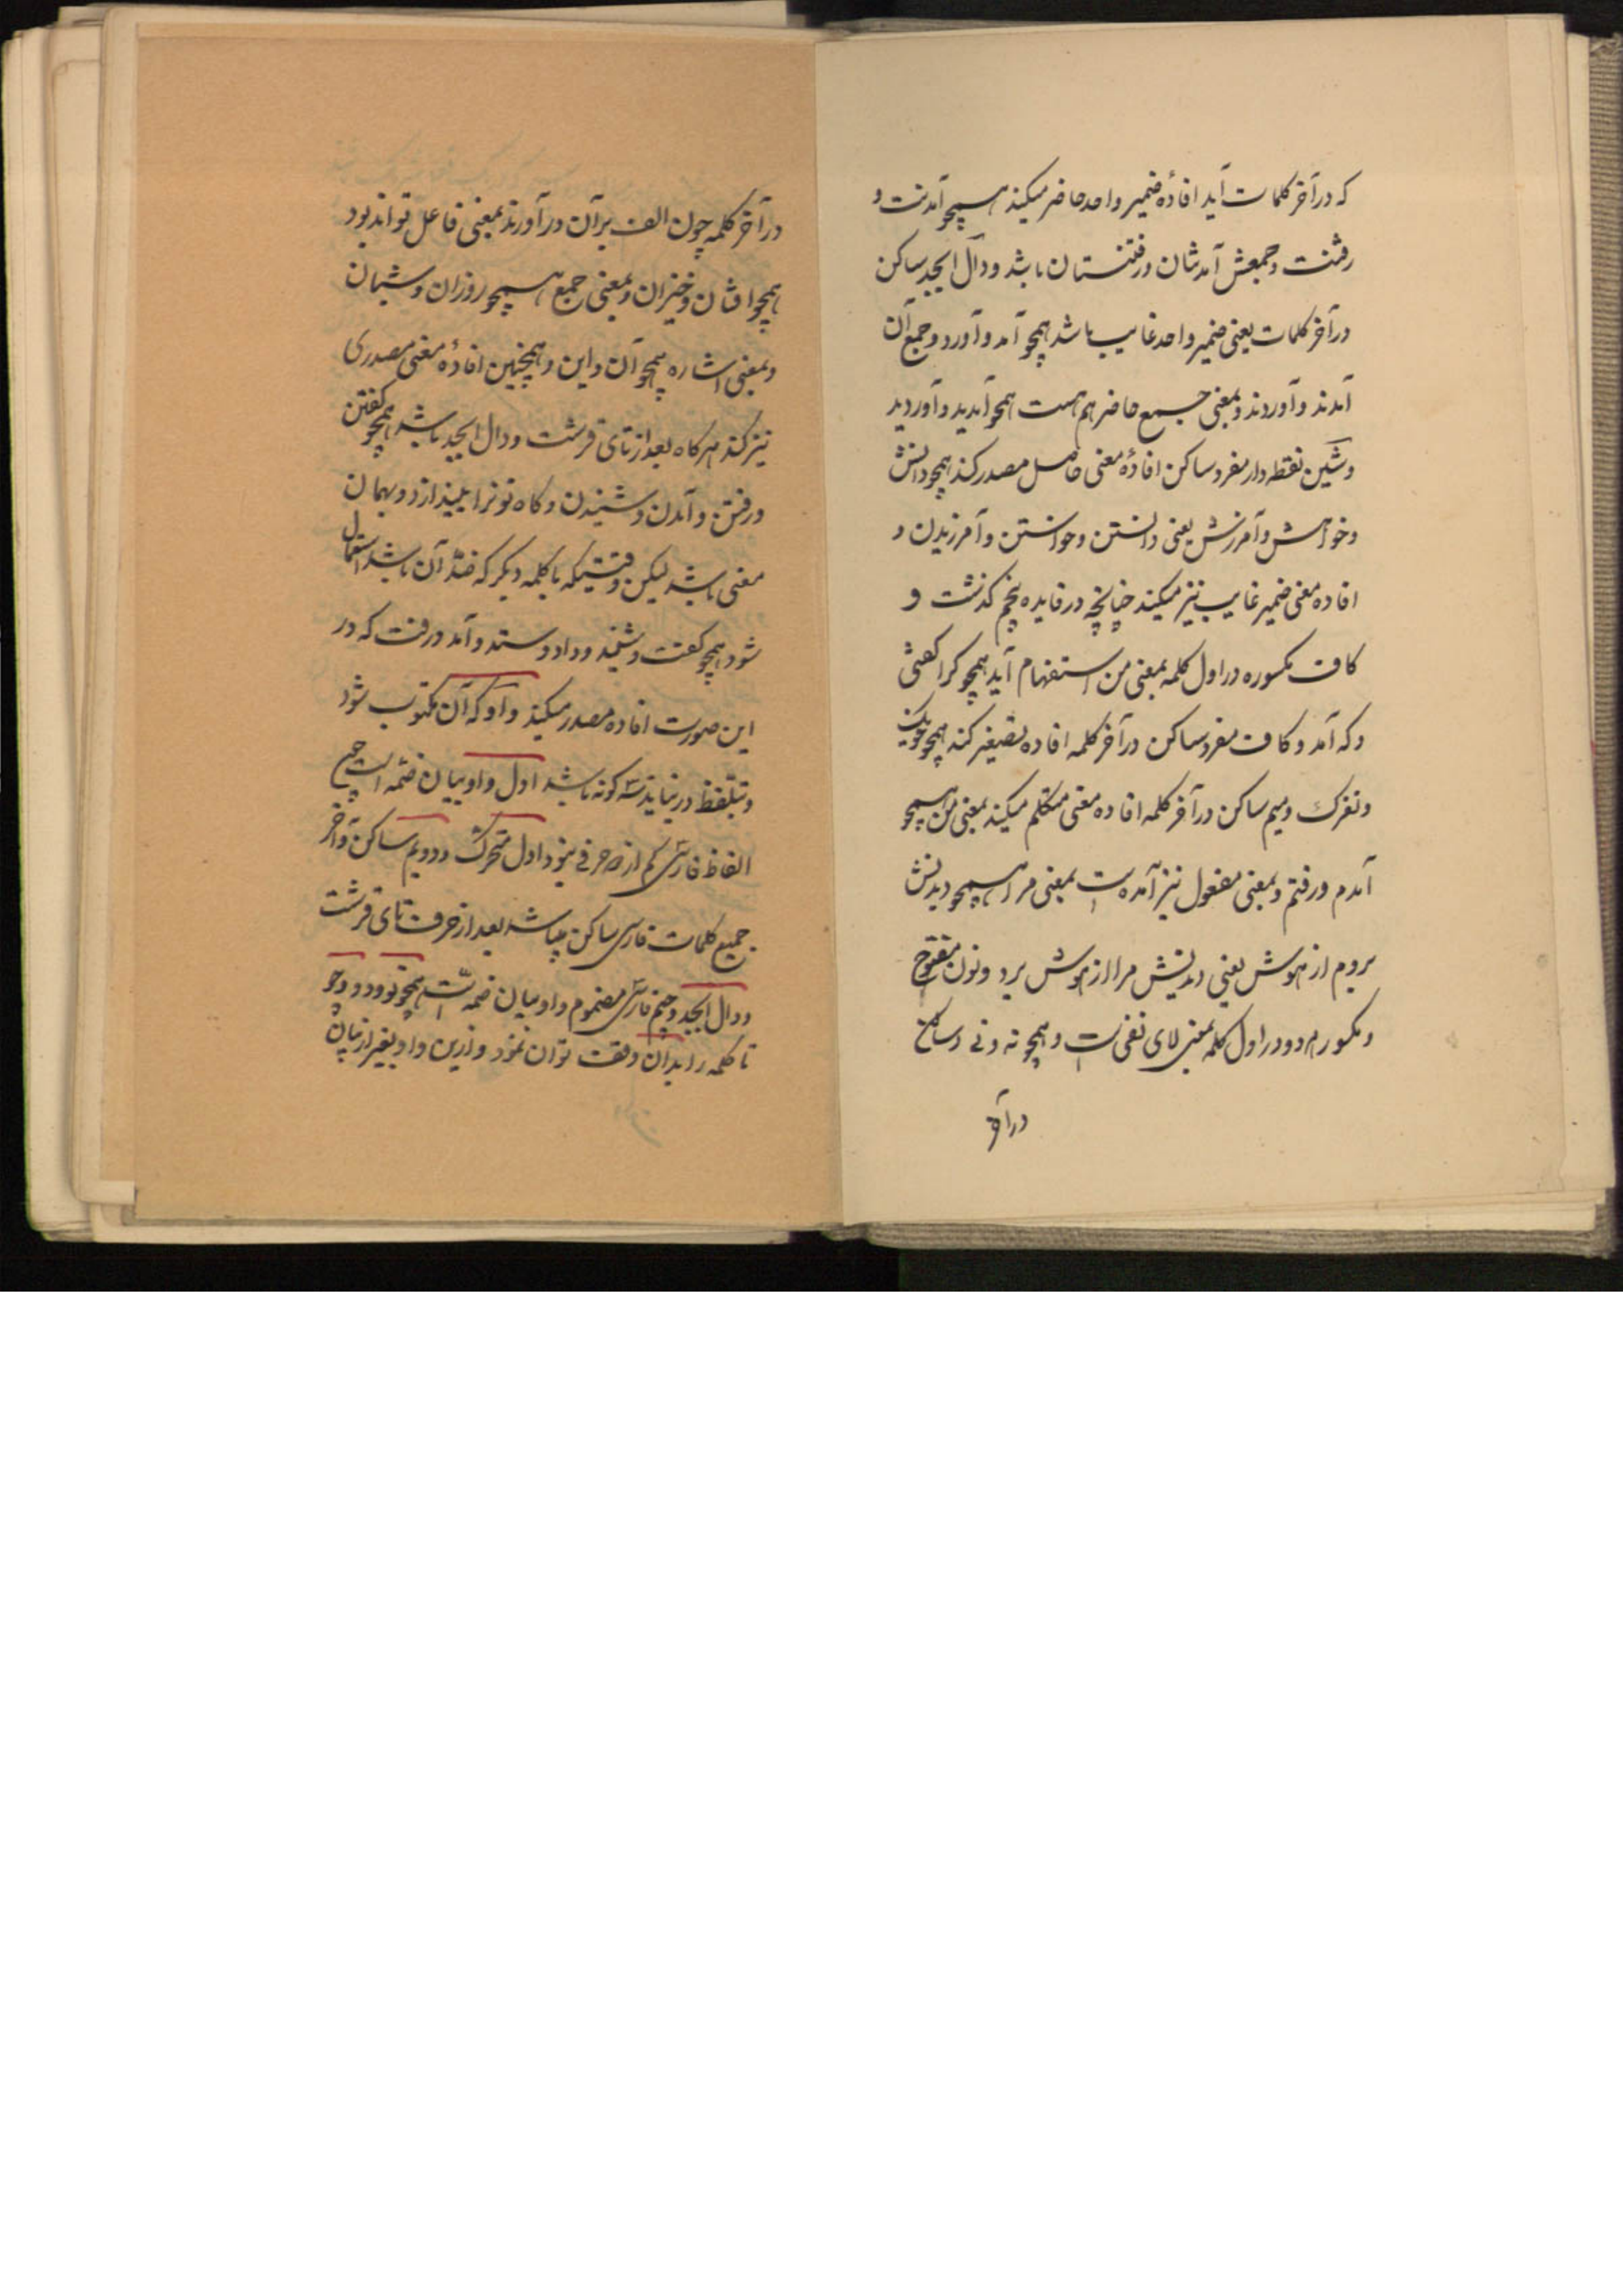 که در آخر کلمات آید افادهٔ ضمیر واحد حاضر میکند همچو آمدنت و
رفتنت و جمعش آمدنتان و رفتنستان باشد و دال ابجد ساکن
در آخر کلمات یعنی ضمیر واحد غایب باشد همچو آمد و آورد و جمع آن
آمدند و آوردند و بمعنی جمع حاضر هم هست همچو آمدید و آوردید
و شین نقطه دار مفرد ساکن افادهٔ معنی حاصل مصدر کند همچو دانش
و خواهش و آمرزش یعنی دانستن و خواستن و آمرزیدن و
افاده معنی ضمیر غایب نیز میکند چنانچه در قایده پنجم کذشت و
کاف مکسوره در اول کلمه بمعنی من استفهام آید همچو کرا کفتی
و که آمد و کاف مفرد ساکن در آخر کلمه افاده تصغیر کند همچو
و نغزک و میم ساکن در آخر کلمه افاده معنی متکلم میکند بمعنی من همچو
آمدم و رفتم و بمعنی مفعول نیز آمده است بمعنی مرا همچو دیدنش
بردم از هوش یعنی دیدنش مرا از هوش برد و نون مفتوح
و مکسور هردو در اول کلمه بمعنی لای نفی است و همچو نه و نی و ساکن
در آخر
در آخر کلمه چون الف بر آن در آورند بمعنی فاعل تواند بود
همچو افتان و خیزان و بمعنی جمع همچو روزان و شبان
و بمعنی اشاره همچو آن و این و همچنین افادهٔ معنی مصدری
نیز کند هرکاه بعد از تای قرشت و دال ابجد باشد همچو کفتن
و رفتن و آمدن و شنیدن و کاه نونرا بیندازد و بهمان
معنی باشد لیکن وقتیکه با کلمه دیکر که ضد آن باشد استعمال
شود همچو کفت و شنید و داد و ستد و آمد و رفت که در
این صورت افاده مصدر میکند و آو که آن مکتوب شود
و بتلفظ در نیاید سه کونه باشد اول واو بیان ضمه است چه
الفاظ فارسی کم از دو حرفی نبود اول متحرک و دویم ساکن و آخر
جمیع کلمات فارسی ساکن میباشد بعد از حرف تای قرشت
و دال ابجد و جیم فارسی مضموم واو بیان ضمه است همچو تو و دو و چو
تا کلمه را بدان وقف توان نمود و ازین واو بغیر از بیان